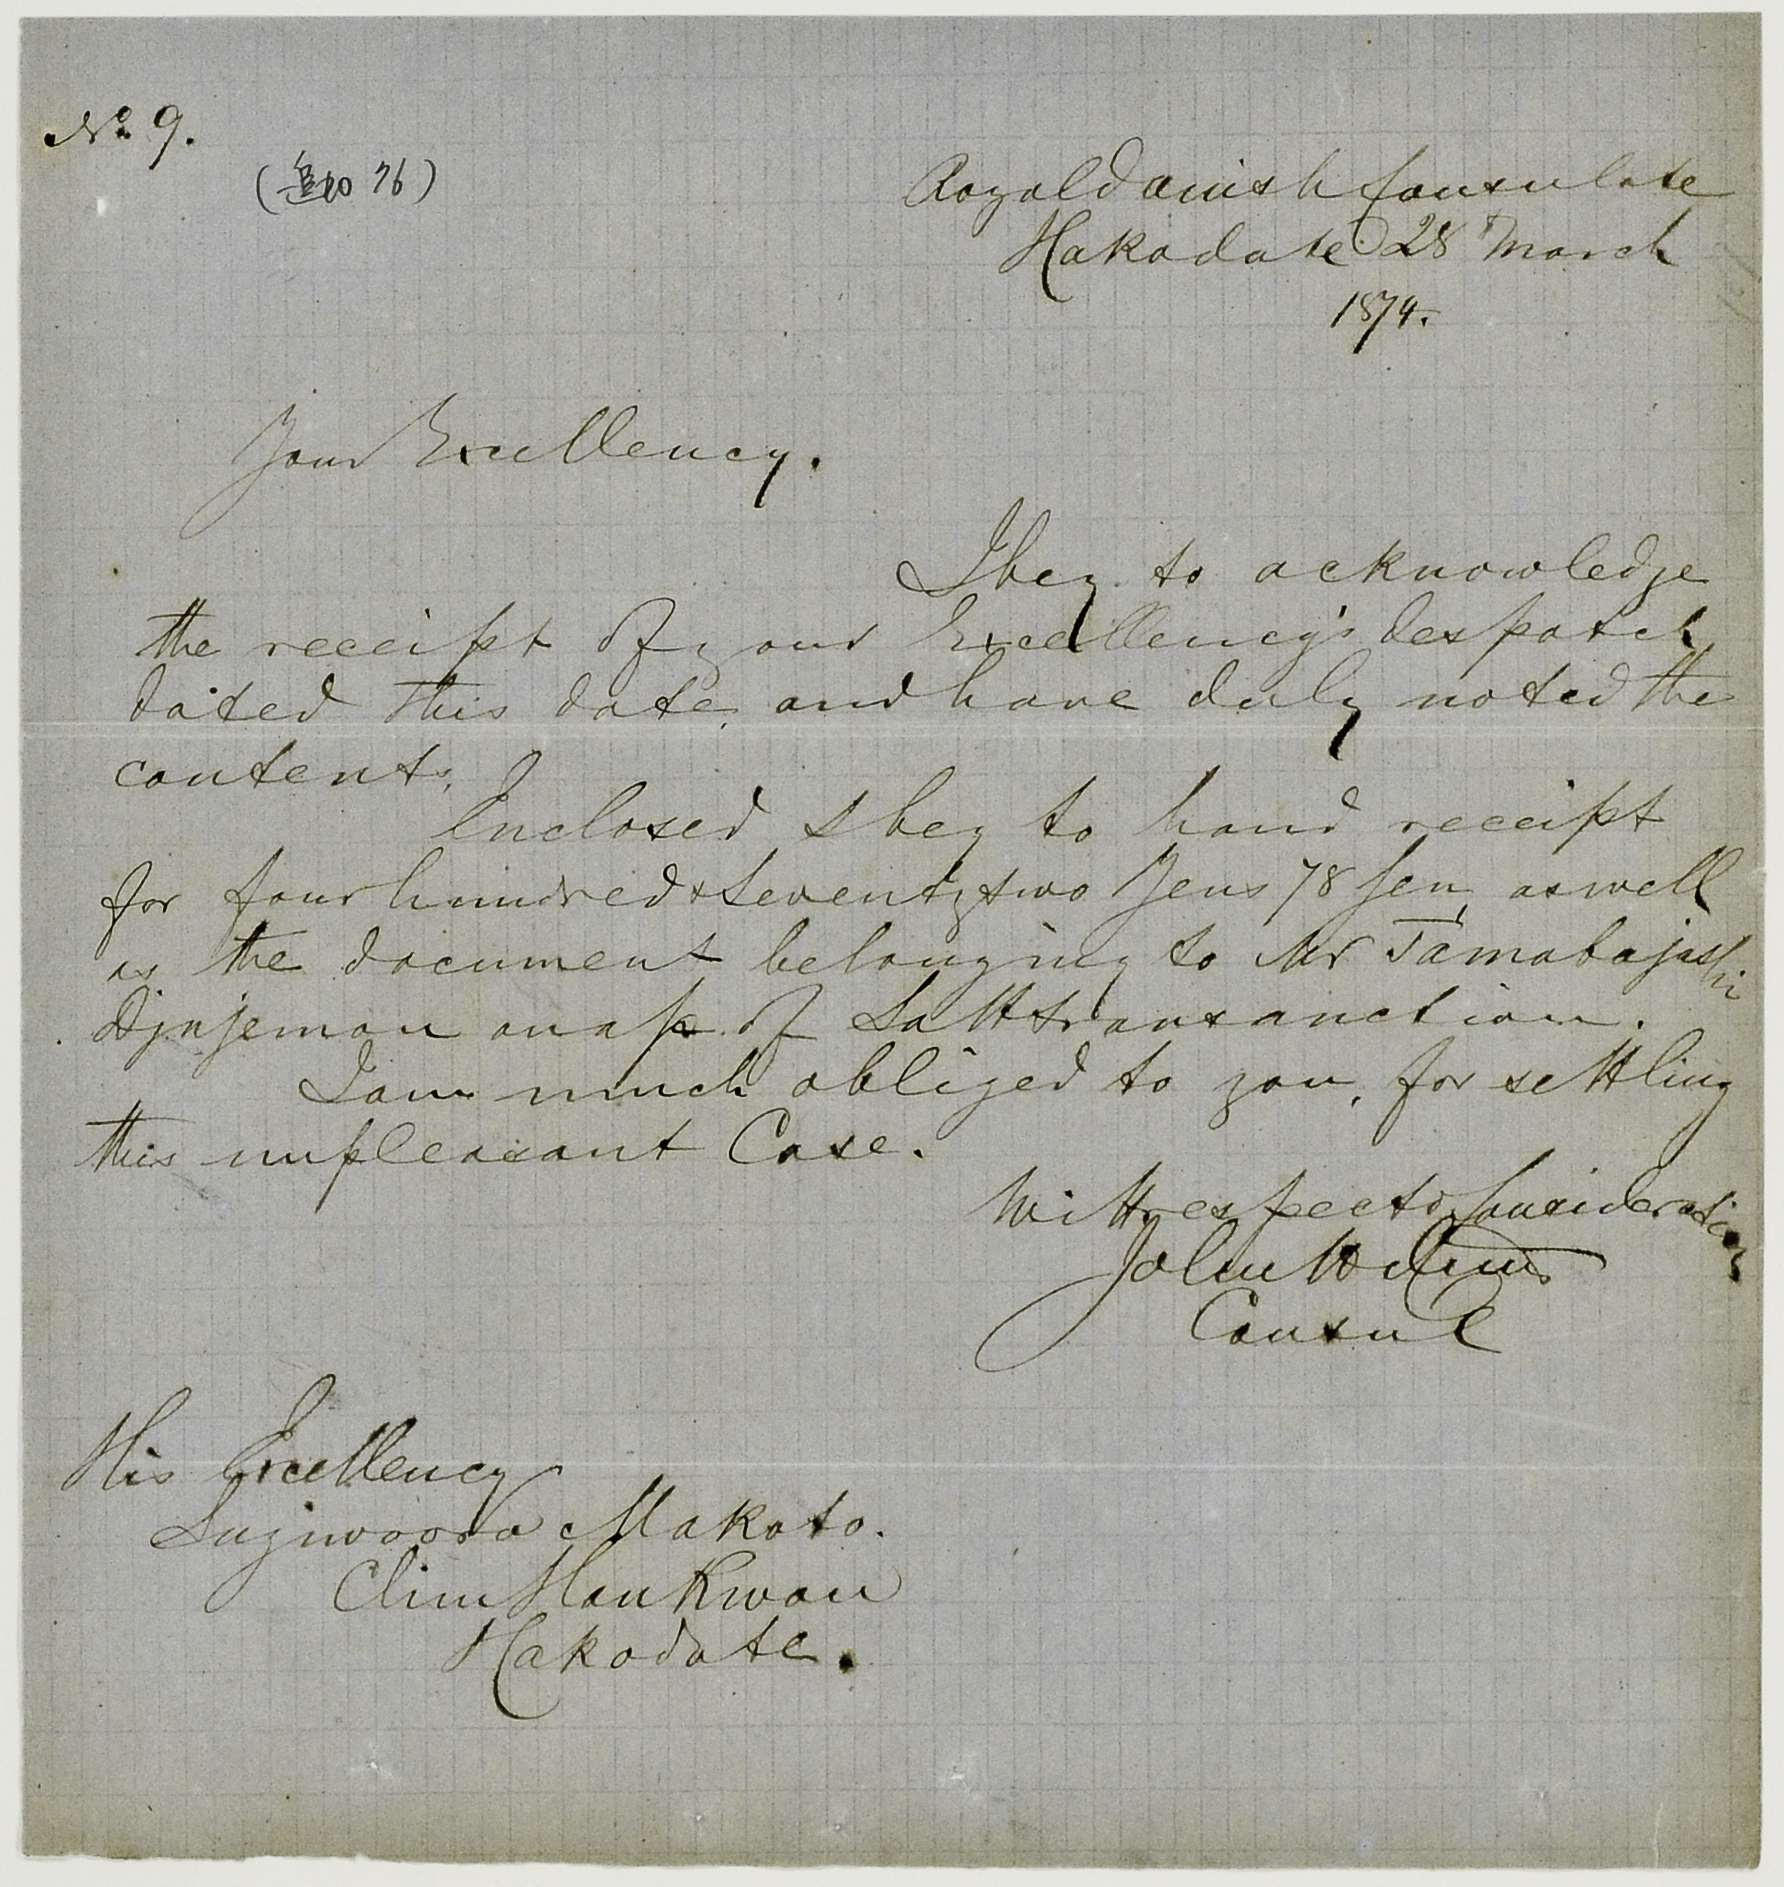 No 9.
( 76)
Royal Danish Consulate
Hakodate 28 March
1874.
Your Excellency.
I beg to acknowledge
the receipt of your Excellency's despatch
dated this date, and have duly noted the
contents.
Enclosed I beg to hand receipt
for four hundred & seventy two Yens 78 Sen, as well
as the document belonging to Mr Tamabajashi
of Salt transanction.
I am much obliged to you, for settling
this unpleasant Case.
With respect & Consideration
John
Consul
His Excellency
Sugiwoora Makoto.
Chiu Han Kwan
Hakodate.